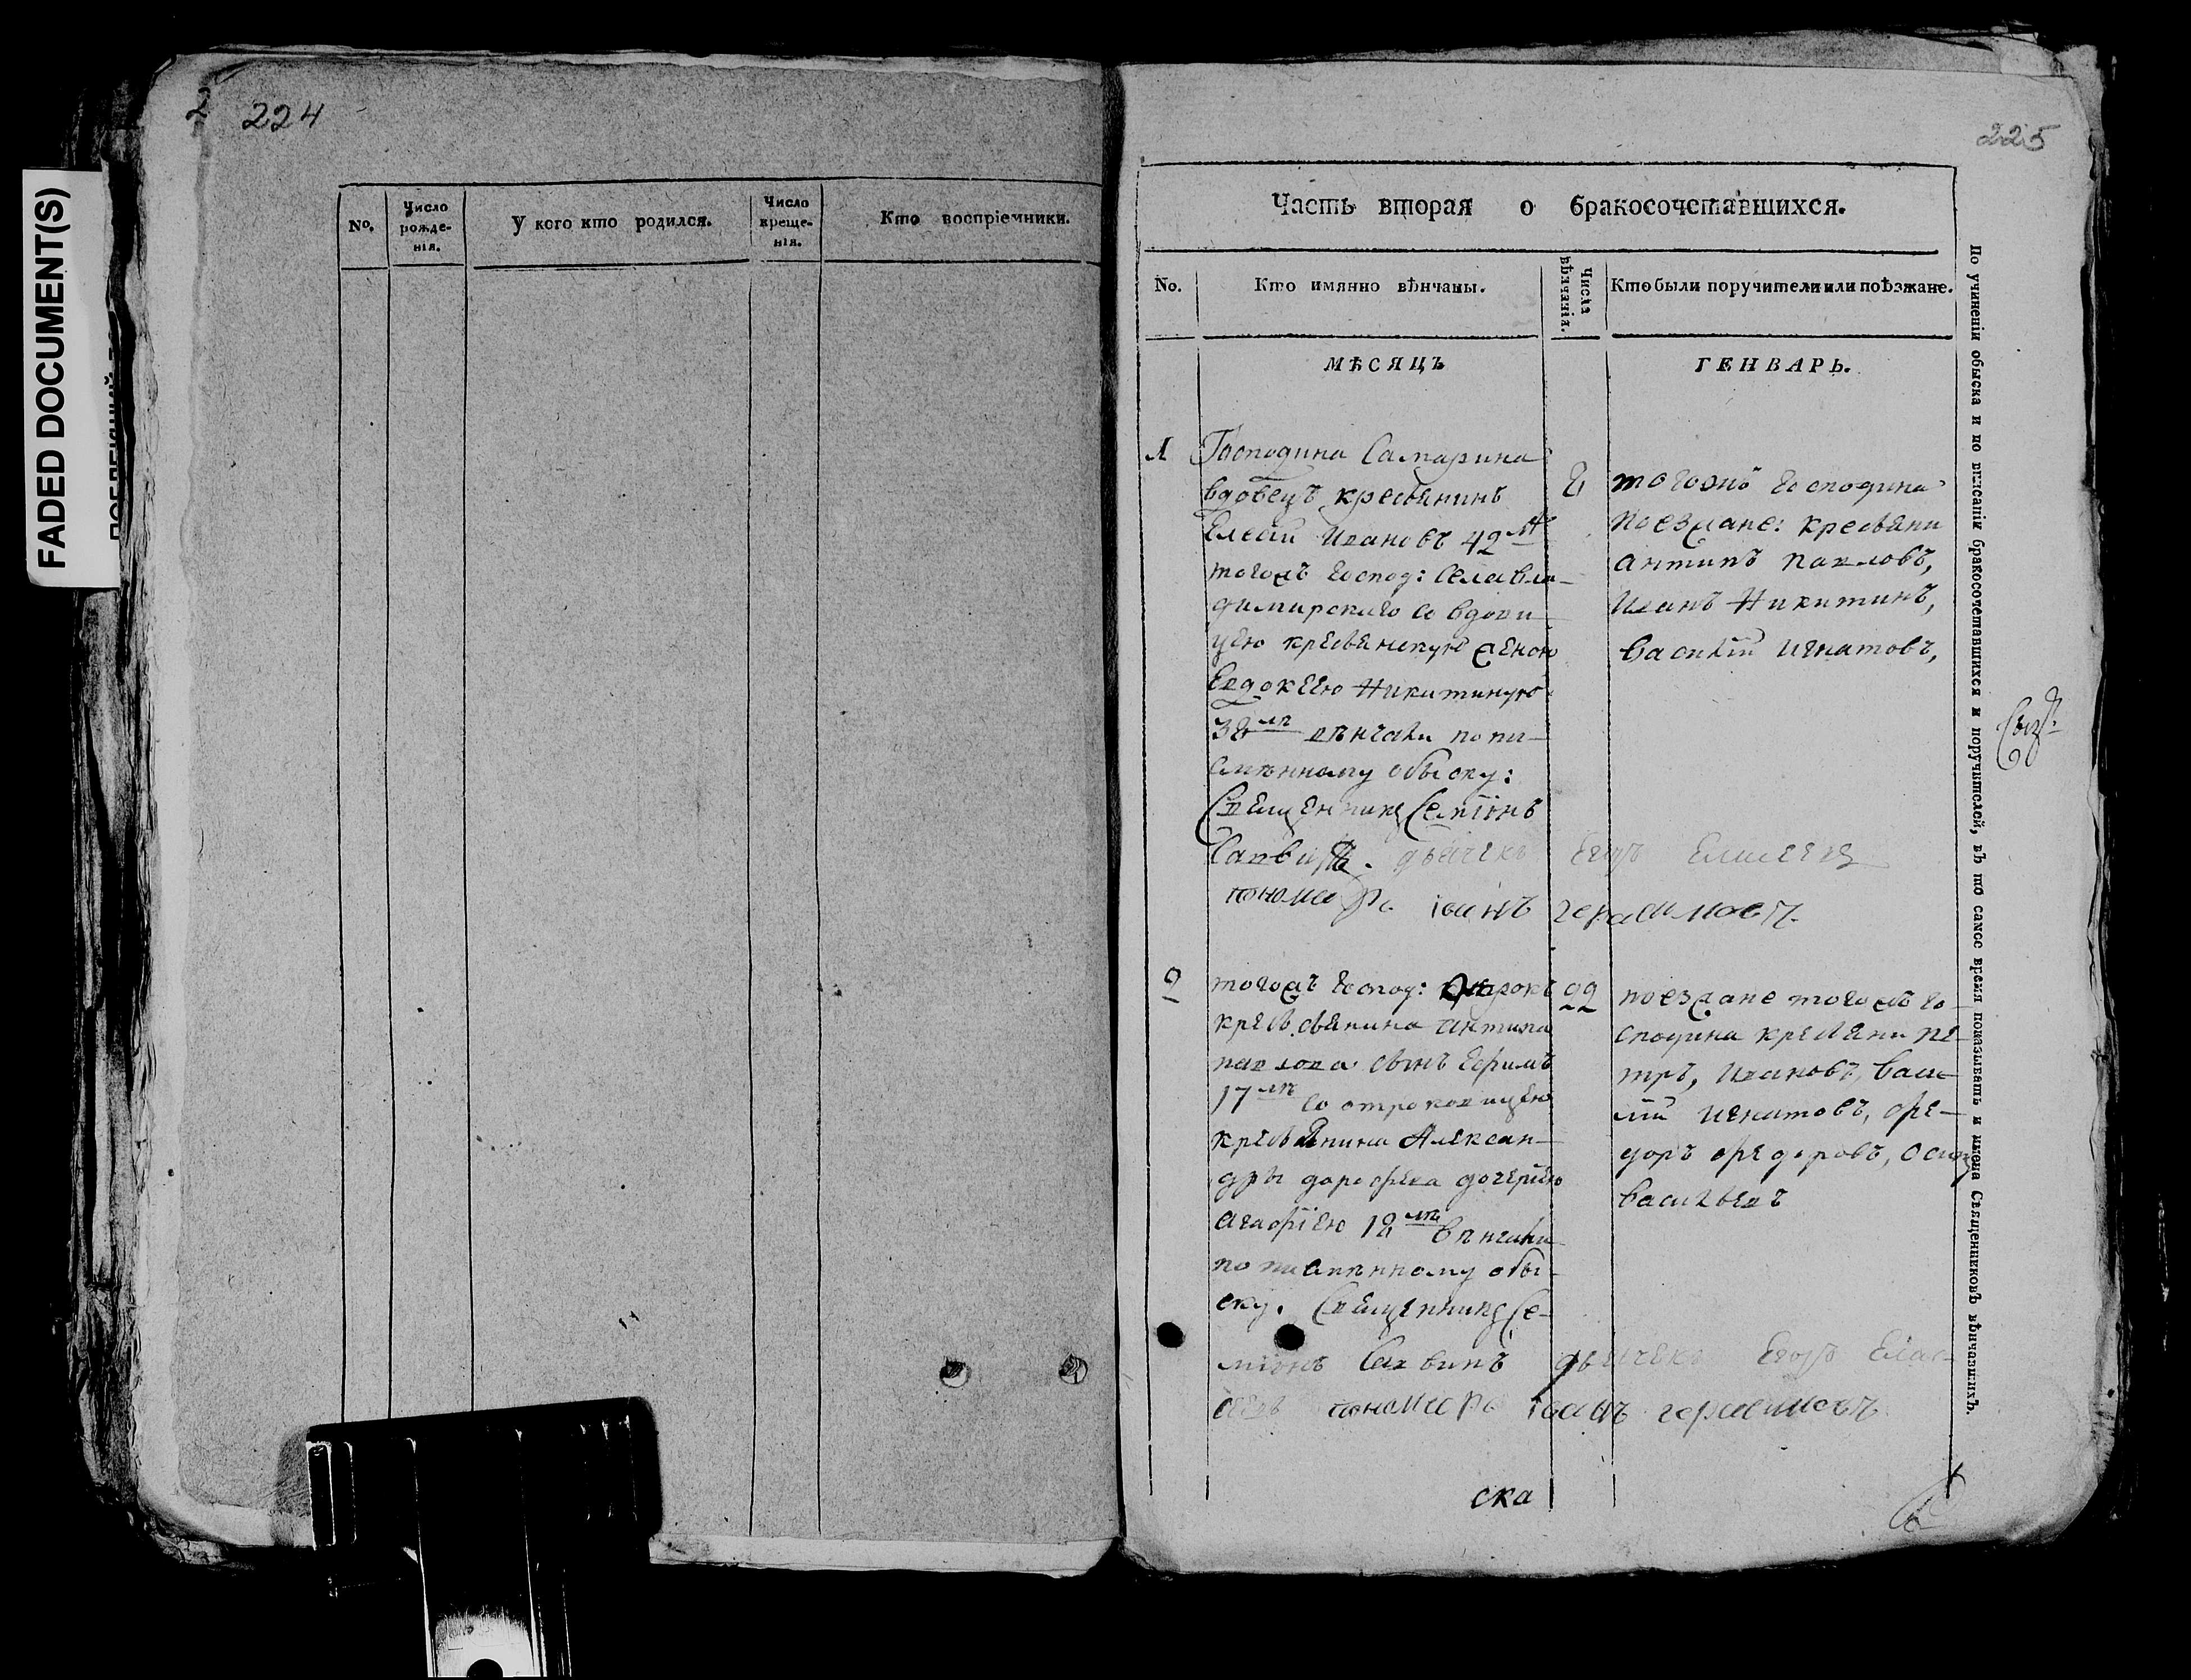 FADED DOCUMENT(S)
2 224
No.
Число рожде-нія.
У кого кто родился.
Число креще-нія.
Кто воспріемники.
225
Часть вторая о бракосочетавшихся.
No.
Кто имянно вѣнчаны.
Числа вѣнчанія.
Кто были поручители или поѣзжане.
МѢСЯЦЪ
ГЕНВАРЬ.
1
Господина Самарина
вдовецъ кресьянинъ
Елесий Ивановъ 42 лѣ
тогожъ господ: села Вла-
димирскаго со вдови-
цею кресьянскую женою
Евдокѣею Никитиною
38 лѣ вѣнчаны по пи-
смѣнному обыску:
Священникъ Семіонъ
Саввинъ. дьячекъ Егоръ Елисеевъ
пономарь іванъ герасимовъ
8
тогожъ господина
поезжане: кресьяни
антипъ павловъ,
Иванъ Никитинъ,
василій игнатовъ,
2
тогожъ господ: отрокъ
кресьянина антипа
павлова сынъ Ефимъ
17 лѣ со отроковицею
кресьянина Алексан-
дры дорофева дочерию
агафіею 18 лѣ вѣнчаны
по писмѣнному обы-
ску. Священникъ Се-
міонъ Саввинъ дьячекъ Егоръ Елис-
еевъ пономарь іванъ герасимовъ
22
поезжане тогожъ го-
сподина кресьяни пе-
тръ, Ивановъ, васи-
лій игнатовъ, фе-
доръ федоровъ, осипъ
васильевъ
ска
По учиненіи обыска и по вписаніи бракосочетавшихся и поручителей, въ то самое время показывать и имена Священниковъ вѣнчавшихъ.